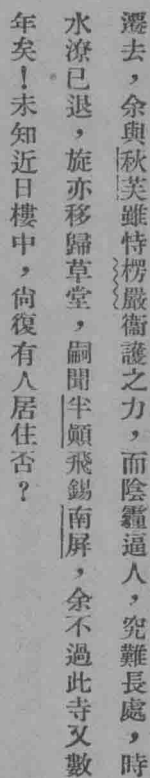 遷去，余與秋芙雖恃楞嚴衞護之力，而陰霾逼人，究難長處，時
水潦已退，旋亦移歸草堂，嗣聞半顚飛錫南屏，余不過此寺又數
年矣！未知近日樓中，尙復有人居住否？